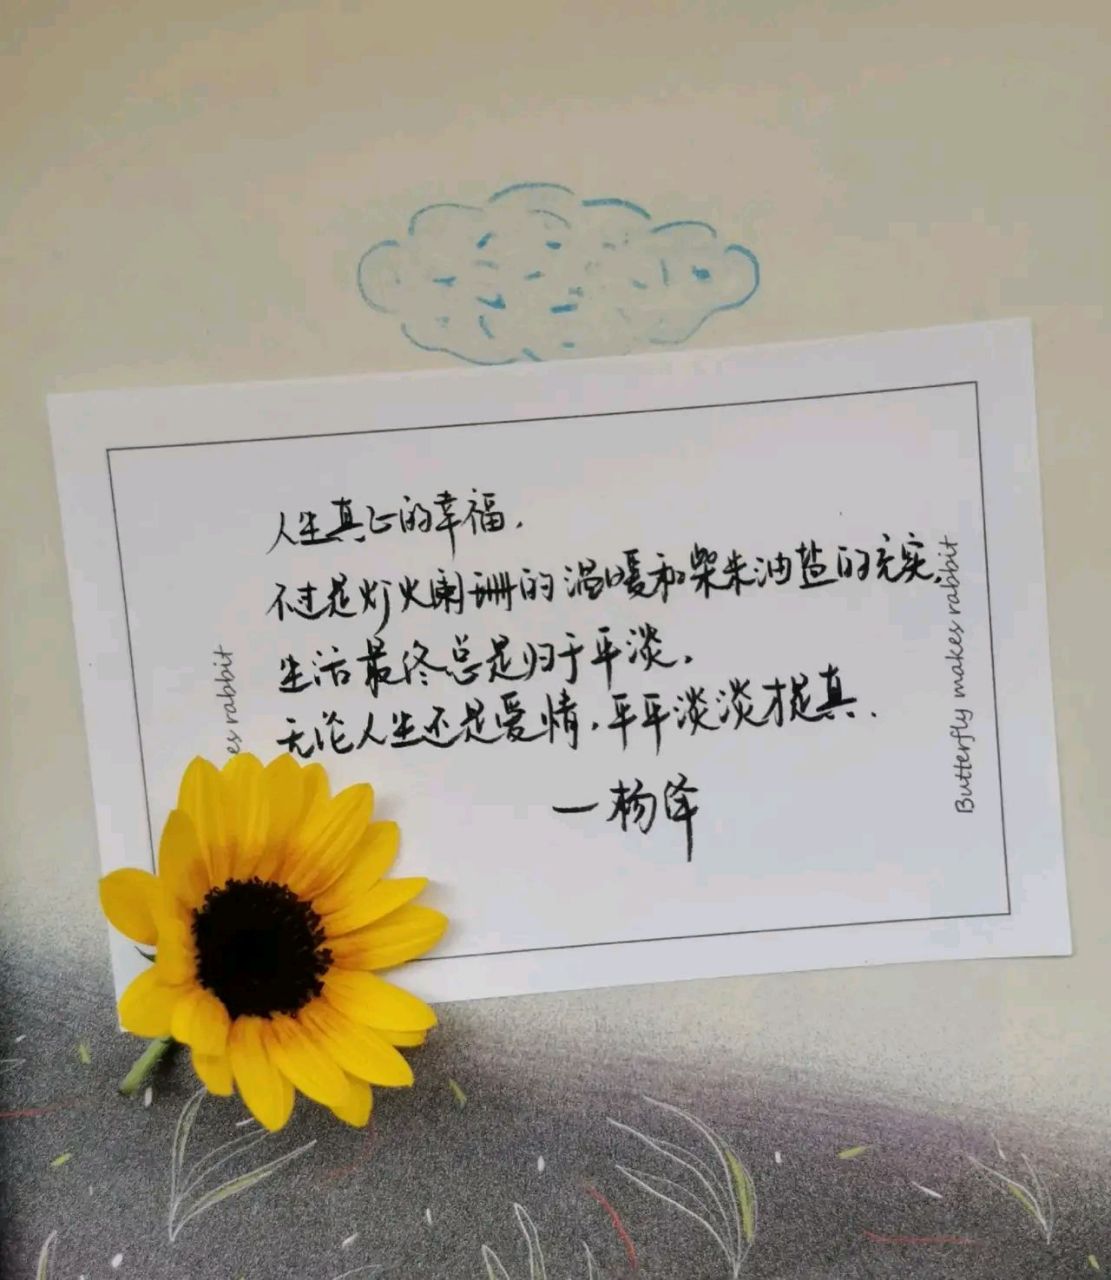 人生真正的幸福，
不过是灯火阑珊的温暖和柴米油盐的充实，
生活最终总是归于平淡，
无论人生还是爱情，平平淡淡才是真.
一杨绛
es rabbit
Butterfly makes rabbit